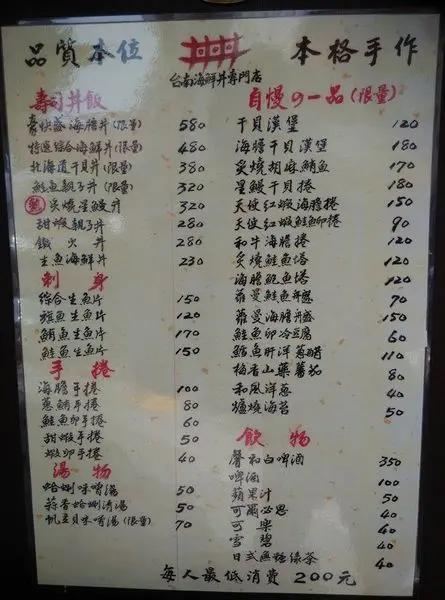 品質本位
本格手作
台南海鮮丼專門店
壽司丼飯
豪快盛海膽丼(限量) 580
特選綜合海鮮丼(限量) 480
北海道干貝丼(限量) 380
鮭魚親子丼(限量) 320
炙燒星鰻丼 320
甜蝦親子丼 280
鐵火丼 280
生魚海鮮丼 230
刺身
綜合生魚片 150
旗魚生魚片 120
鮪魚生魚片 170
鮭魚生魚片 150
手捲
海膽手捲 100
蔥鮪手捲 80
鮭魚卵手捲 60
甜蝦手捲 50
蝦卵手捲 40
湯物
蛤蜊味噌湯 50
蒜香蛤蜊清湯 50
帆立貝味噌湯(限量) 70
自慢の一品(限量)
干貝漢堡 120
海膽干貝漢堡 180
炙燒胡麻鮪魚 170
星鰻干貝捲 180
天使紅蝦海膽捲 150
天使紅蝦鮭卵捲 90
和牛海膽捲 120
炙燒鮭魚塔 120
海膽鮑魚塔 120
蘿蔓鮭魚 70
蘿蔓海膽 150
鮭魚卵冷豆腐 60
鮟魚肝洋蔥醋 110
梅香山藥蕃茄 80
和風洋蔥 40
爐燒海苔 50
飲物
馨和白啤酒 350
啤酒 100
蘋果汁 50
可爾必思 40
可樂 40
雪碧 40
日式無糖綠茶 40
每人最低消費200元